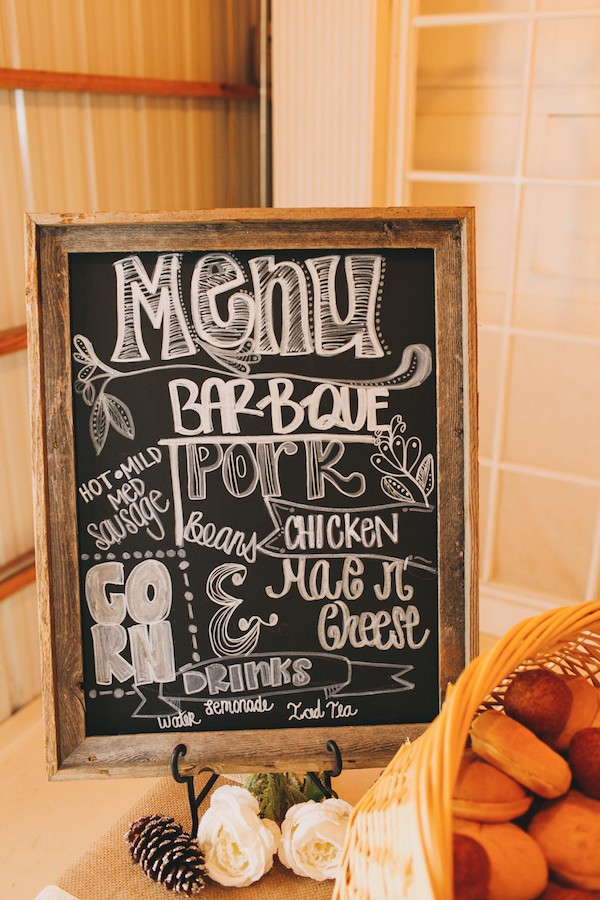 Menu
BAR-B-QUE
PORK
HOT • MILD
MED
Sausage
Beans
CHICKEN
& Mac n'
Cheese
CO
RN
DRINKS
Water Lemonade Iced Tea